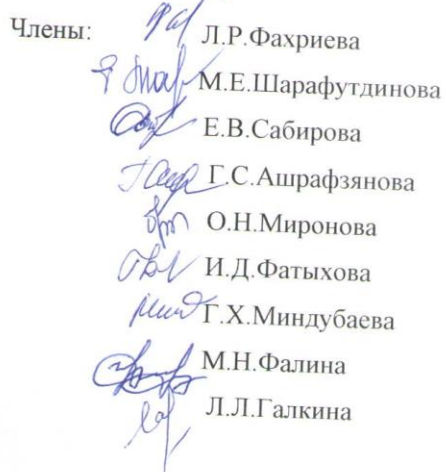 Члены: Л.Р.Фахриева
М.Е.Шарафутдинова
Е.В.Сабирова
Г.С.Ашрафзянова
О.Н.Миронова
И.Д.Фатыхова
Г.Х.Миндубаева
М.Н.Фалина
Л.Л.Галкина